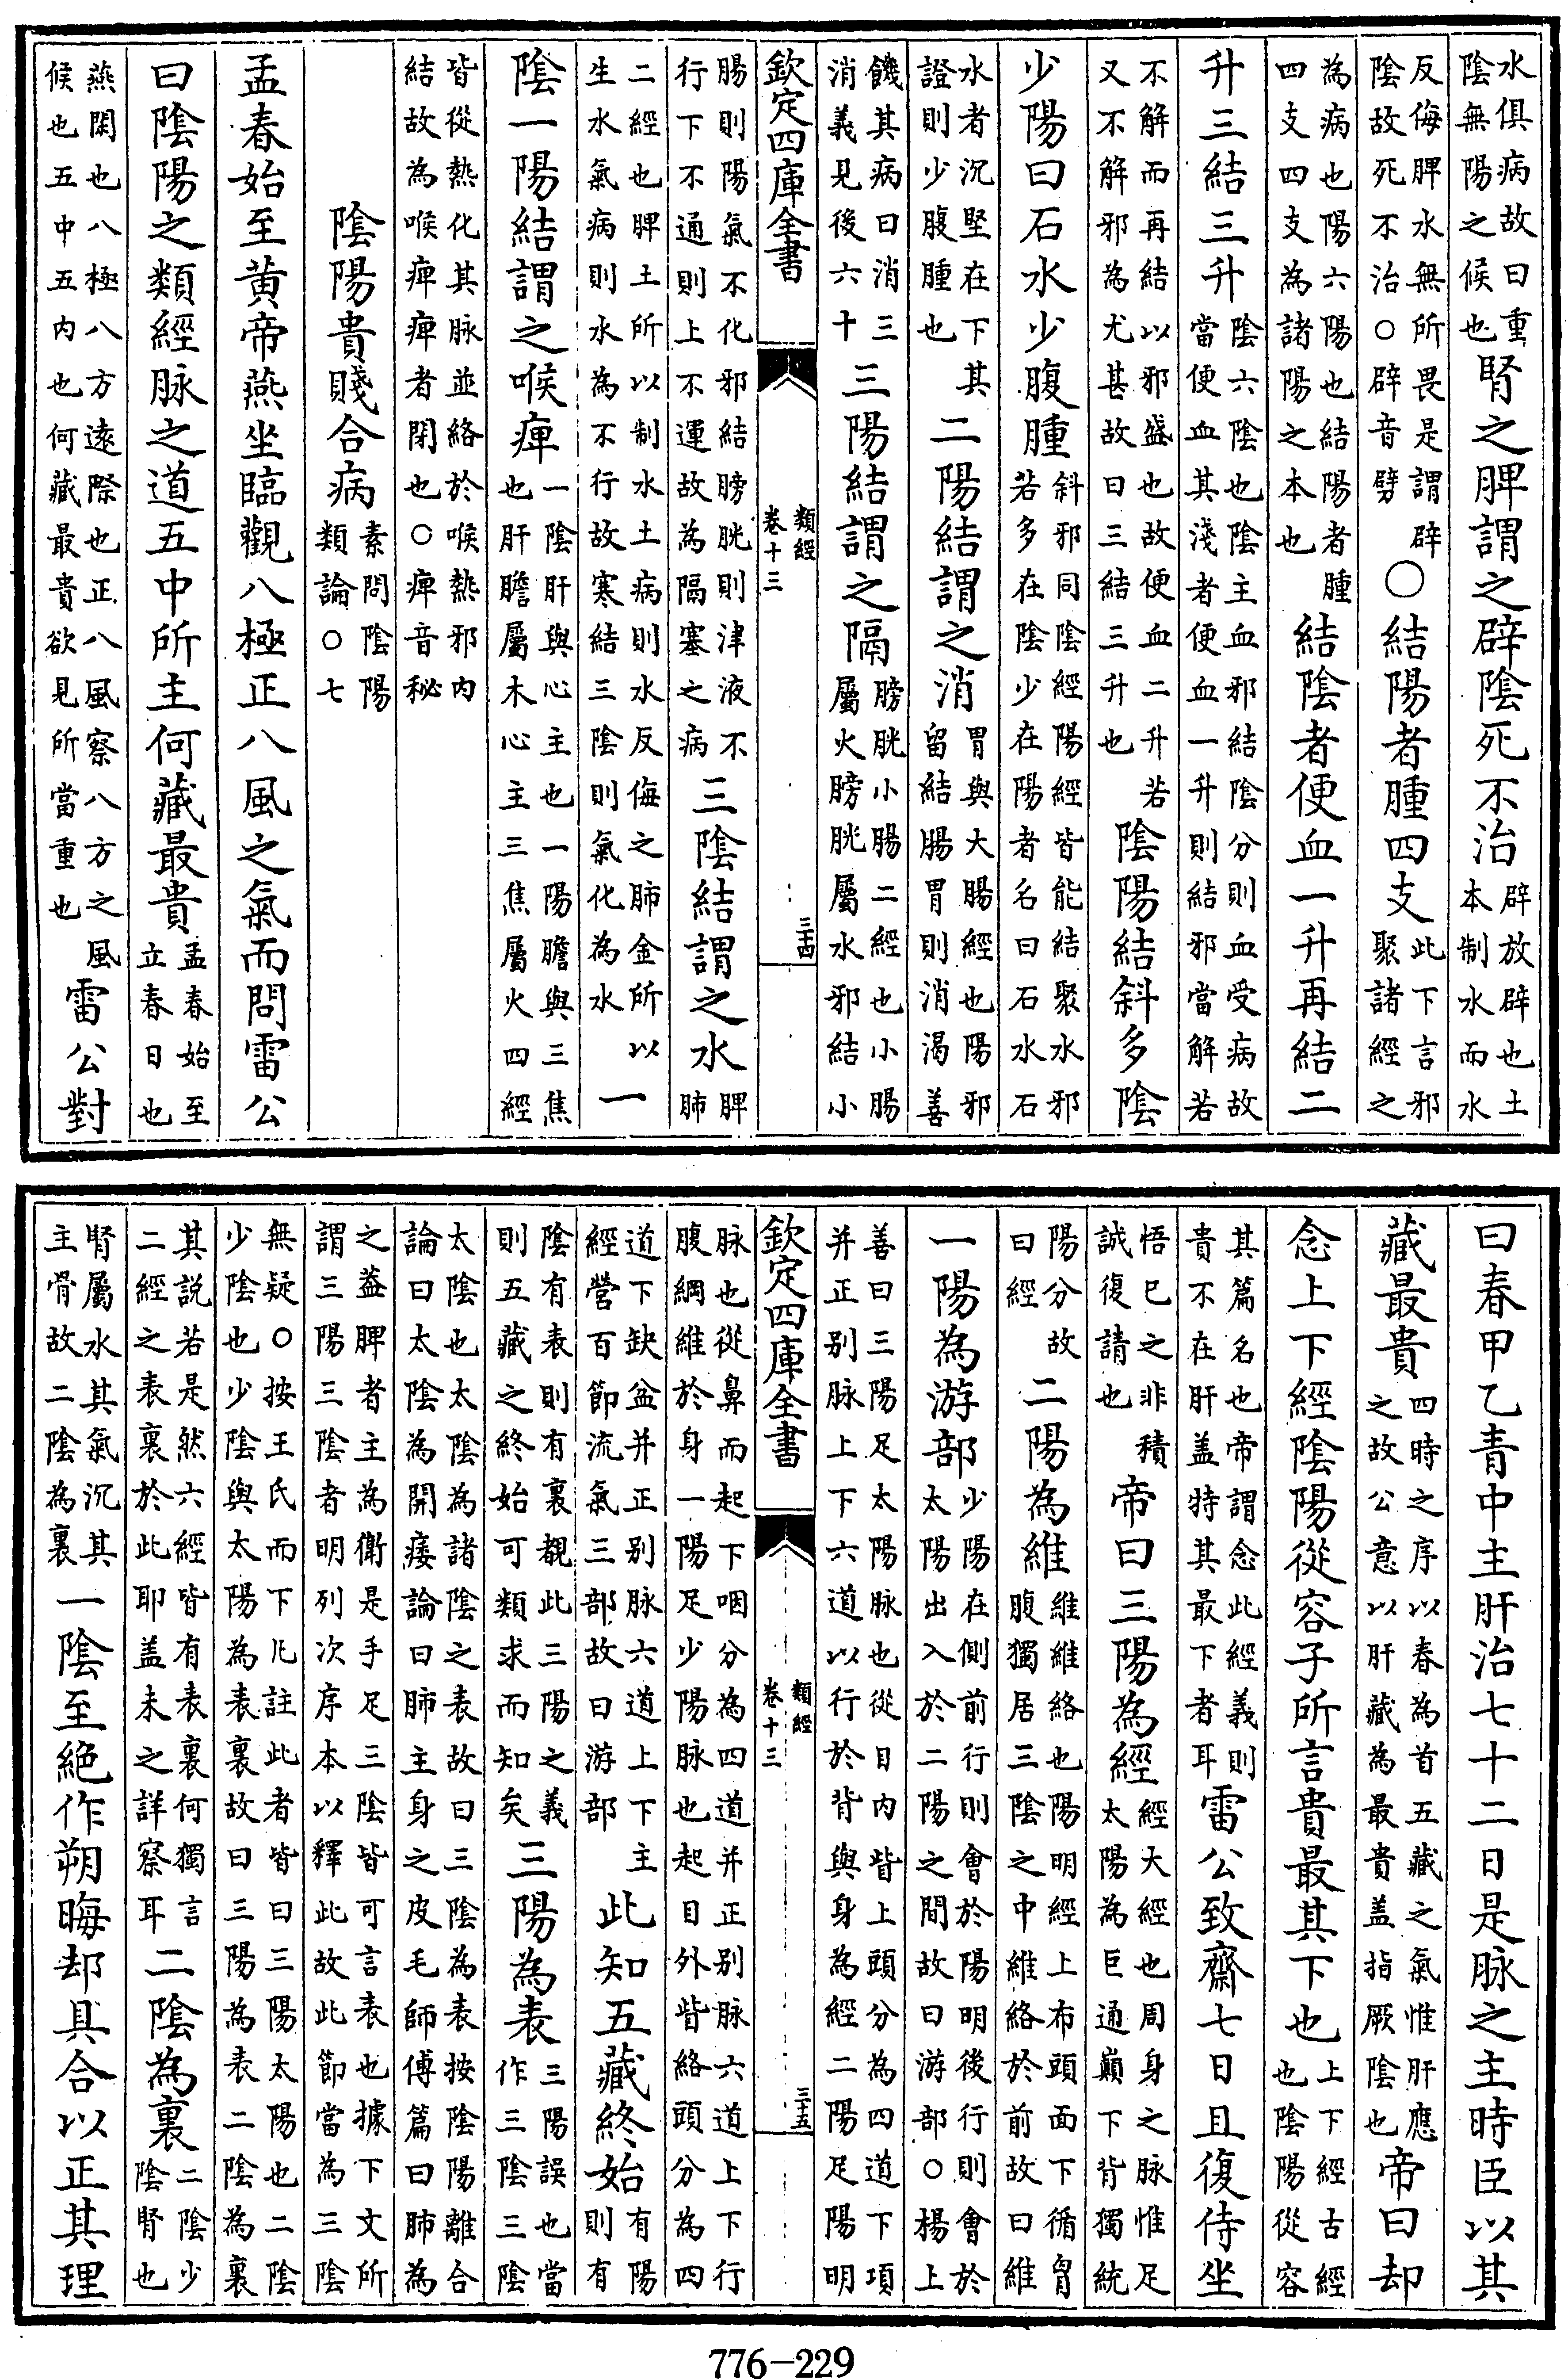 水俱病故曰重陰無陽之候也腎之脾謂之辟陰死不治辟放辟也土本制水而水
反侮脾水無所畏是謂辟陰故死不治○辟音劈○結陽者腫四支此下言邪聚諸經之
為病也陽六陽也結陽者腫四支四支為諸陽之本也結陰者便血一升再結二
升三結三升陰六陰也陰主血邪結陰分則血受病故當便血其淺者便血一升則結邪當解若
不解而再結以邪盛也故便血二升若又不解邪為尤甚故曰三結三升也陰陽結斜多陰
少陽曰石水少腹腫斜邪同陰經陽經皆能結聚水邪若多在陰少在陽者名曰石水石
水者沉堅在下其證則少腹腫也二陽結謂之消胃與大腸經也陽邪留結腸胃則消渴善
饑其病曰消三消義見後六十三陽結謂之隔膀胱小腸二經也小腸屬火膀胱屬水邪結小
欽定四庫全書 類經 卷十三 三十四
腸則陽氣不化邪結膀胱則津液不行下不通則上不運故為隔塞之病三陰結謂之水脾肺
二經也脾土所以制水土病則水反侮之肺金所以生水氣病則水為不行故寒結三陰則氣化為水一
陰一陽結謂之喉痺一陰肝與心主也一陽膽與三焦也肝膽屬木心主三焦屬火四經
皆從熱化其脉並絡於喉熱邪內結故為喉痺痺者閉也○痺音秘
陰陽貴賤合病素問陰陽類論○七
孟春始至黃帝燕坐臨觀八極正八風之氣而問雷公
曰陰陽之類經脉之道五中所主何藏最貴孟春始至立春日也
燕閑也八極八方遠際也正八風察八方之風候也五中五內也何藏最貴欲見所當重也雷公對
曰春甲乙青中主肝治七十二日是脉之主時臣以其
藏最貴四時之序以春為首五藏之氣惟肝應之故公意以肝藏為最貴盖指厥陰也帝曰却
念上下經陰陽從容子所言貴最其下也上下經古經也陰陽從容
其篇名也帝謂念此經義則貴不在肝盖特其最下者耳雷公致齋七日旦復侍坐
悟已之非積誠復請也帝曰三陽為經經大經也周身之脉惟足太陽為巨通巔下背獨統
陽分故曰經二陽為維維維絡也陽明經上布頭面下循胷腹獨居三陰之中維絡於前故曰維
一陽為游部少陽在側前行則會於陽明後行則會於太陽出入於二陽之間故曰游部○楊上
善曰三陽足太陽脉也從目內眥上頭分為四道下項并正别脉上下六道以行於背與身為經二陽足陽明
欽定四庫全書 類經 卷十三 三十五
脉也從鼻而起下咽分為四道并正别脉六道上下行腹綱維於身一陽足少陽脉也起目外眥絡頭分為四
道下缺盆并正别脉六道上下主經營百節流氣三部故曰游部此知五藏終始有陽則有
陰有表則有裏觀此三陽之義則五藏之終始可類求而知矣三陽為表三陽誤也當作三陰三陰
太陰也太陰為諸陰之表故曰三陰為表按陰陽離合論曰太陰為開痿論曰肺主身之皮毛師傅篇曰肺為
之葢脾者主為衛是手足三陰皆可言表也據下文所謂三陽三陰者明列次序本以釋此故此節當為三陰
無疑○按王氏而下凡註此者皆曰三陽太陽也二陰少陰也少陰與太陽為表裏故曰三陽為表二陰為裏
其説若是然六經皆有表裏何獨言二經之表裏於此耶盖未之詳察耳二陰為裏二陰少陰腎也
腎屬水其氣沉其主骨故二陰為裏一陰至絕作朔晦却具合以正其理
776-229